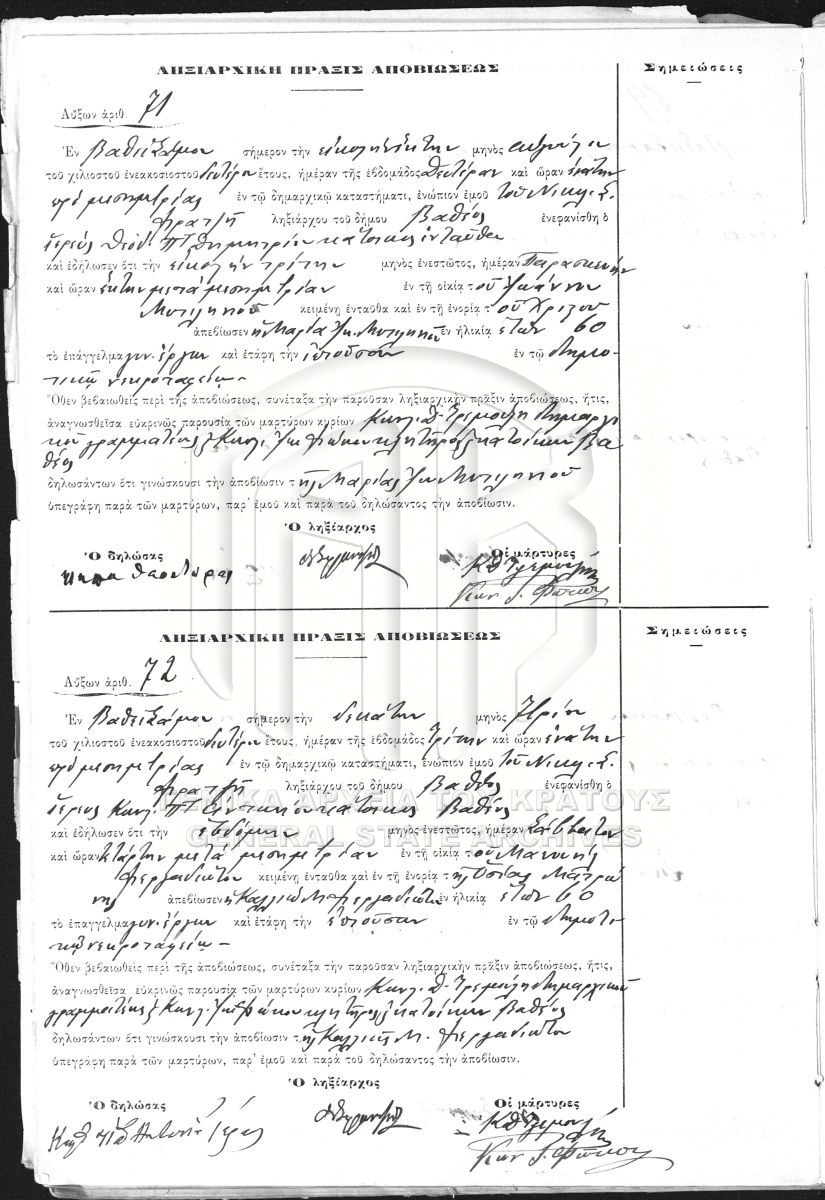 ΛΗΞΙΑΡΧΙΚΗ ΠΡΑΞΙΣ ΑΠΟΒΙΩΣΕΩΣ
Σημειώσεις
Αὔξων ἀριθ. 71
Ἐν Βαθεῖ Σάμου σήμερον τὴν εἰκοστὴν ἕκτην μηνὸς
τοῦ χιλιοστοῦ ἐνεακοσιοστοῦ δευτέρου ἔτους, ἡμέραν τῆς ἑβδομάδος Δευτέραν καὶ ὥραν ἐνάτην
πρὸ μεσημβρίας ἐν τῷ δημαρχικῷ καταστήματι, ἐνώπιον ἐμοῦ τοῦ Νικολ. Σ.
ληξιάρχου τοῦ δήμου Βαθέος ἐνεφανίσθη ὁ
ἱερεὺς Θεόδ. Π Δημητρίου κάτοικος ἐνταῦθα
καὶ ἐδήλωσεν ὅτι τὴν εἰκοστὴν τρίτην μηνὸς ἐνεστῶτος, ἡμέραν Παρασκευὴν
καὶ ὥραν ἕκτην μετὰ μεσημβρίαν ἐν τῇ οἰκίᾳ τοῦ Ἰωάννου
Μυτιληνιοῦ κειμένῃ ἐνταῦθα καὶ ἐν τῇ ἐνορίᾳ τοῦ Χριστοῦ
ἀπεβίωσεν ἡ Μαρία Ἰω. Μυτιληνιοῦ ἐν ἡλικίᾳ ἐτῶν 60
τὸ ἐπάγγελμα γυν. ἔργων καὶ ἐτάφη τὴν ἐπιοῦσαν ἐν τῷ δημο-
τικῷ νεκροταφείῳ –
Ὅθεν βεβαιωθεὶς περὶ τῆς ἀποβιώσεως, συνέταξα τὴν παροῦσαν ληξιαρχικὴν πρᾶξιν ἀποβιώσεως, ἥτις,
ἀναγνωσθεῖσα εὐκρινῶς παρουσίᾳ τῶν μαρτύρων κυρίων Κωνσ. Θ. Τρεμούλη δημαρχι
κοῦ γραμματέως & Κωνσ. Ἰω. Φώκου κλητῆρος κατοίκων Βα
θέος
δηλωσάντων ὅτι γινώσκουσι τὴν ἀποβίωσιν τῆς Μαρίας Ἰω Μυτιληνιοῦ
ὑπεγράφη παρὰ τῶν μαρτύρων, παρ' ἐμοῦ καὶ παρὰ τοῦ δηλώσαντος τὴν ἀποβίωσιν.
Ὁ ληξίαρχος
Ὁ δηλώσας
Οἱ μάρτυρες
ΛΗΞΙΑΡΧΙΚΗ ΠΡΑΞΙΣ ΑΠΟΒΙΩΣΕΩΣ
Σημειώσεις
Αὔξων ἀριθ. 72
Ἐν Βαθεῖ Σάμου σήμερον τὴν δεκάτην μηνὸς
τοῦ χιλιοστοῦ ἐνεακοσιοστοῦ δευτέρου ἔτους, ἡμέραν τῆς ἑβδομάδος Τρίτην καὶ ὥραν ἐνάτην
πρὸ μεσημβρίας ἐν τῷ δημαρχικῷ καταστήματι, ἐνώπιον ἐμοῦ τοῦ Νικολ. Σ.
ληξιάρχου τοῦ δήμου Βαθέος ἐνεφανίσθη ὁ
ἱερεὺς Κωνσ. Π κάτοικος Βαθέος
ΓΕΝΙΚΑ ΑΡΧΕΙΑ ΤΟΥ ΚΡΑΤΟΥΣ
GENERAL STATE ARCHIVES
καὶ ἐδήλωσεν ὅτι τὴν ἑβδόμην μηνὸς ἐνεστῶτος, ἡμέραν Σάββατον
καὶ ὥραν τετάρτην μετὰ μεσημβρίαν ἐν τῇ οἰκίᾳ τοῦ Μανουὴλ
κειμένῃ ἐνταῦθα καὶ ἐν τῇ ἐνορίᾳ τῆς Ὁσίας Ματρώ
νης ἀπεβίωσεν ἡ Καλλιόπη Μ. ἐν ἡλικίᾳ ἐτῶν 60
τὸ ἐπάγγελμα γυν. ἔργων καὶ ἐτάφη τὴν ἐπιοῦσαν ἐν τῷ δημοτι
κῷ νεκροταφείῳ –
Ὅθεν βεβαιωθεὶς περὶ τῆς ἀποβιώσεως, συνέταξα τὴν παροῦσαν ληξιαρχικὴν πρᾶξιν ἀποβιώσεως, ἥτις,
ἀναγνωσθεῖσα εὐκρινῶς παρουσίᾳ τῶν μαρτύρων κυρίων Κωνσ. Θ. Τρεμούλη δημαρχικοῦ
γραμματέως & Κωνσ. Ἰω. Φώκου κλητῆρος κατοίκων Βαθέος
δηλωσάντων ὅτι γινώσκουσι τὴν ἀποβίωσιν τῆς Καλλιόπης Μ.
ὑπεγράφη παρὰ τῶν μαρτύρων, παρ' ἐμοῦ καὶ παρὰ τοῦ δηλώσαντος τὴν ἀποβίωσιν.
Ὁ ληξίαρχος
Ὁ δηλώσας
Οἱ μάρτυρες